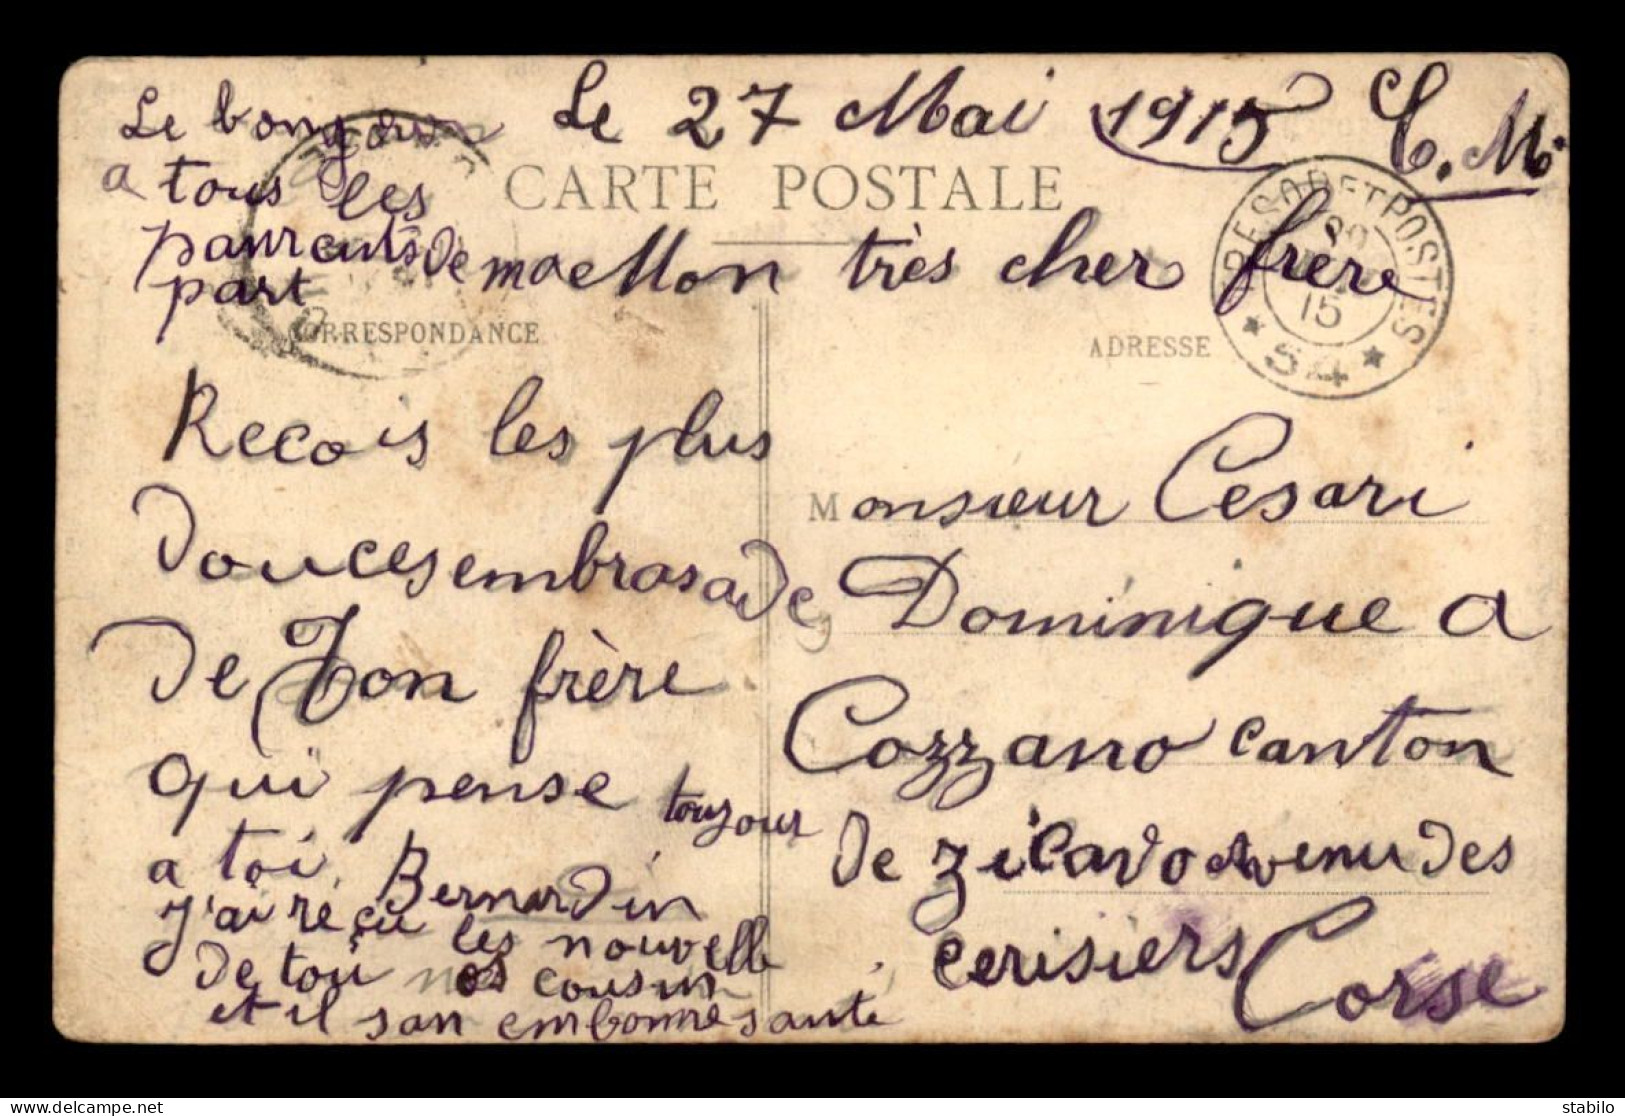 Le 27 Mai 1915 C. M.
Le bonjour
a tous les
parents de ma
part
CARTE POSTALE
Mon très cher frère
CORRESPONDANCE
ADRESSE
TRESOR ET POSTES
15
* 54 *
Recois les plus
douces embrasade
de Ton frère
qui pense toujour
a toi Bernardin
J'ai réçu les nouvelle
de toui nos cousin
et il son embonne santé
Monsieur Cesari
Dominique a
Cozzano canton
de zicavo avenu des
cerisiers Corse
stabilo | delcampe.net